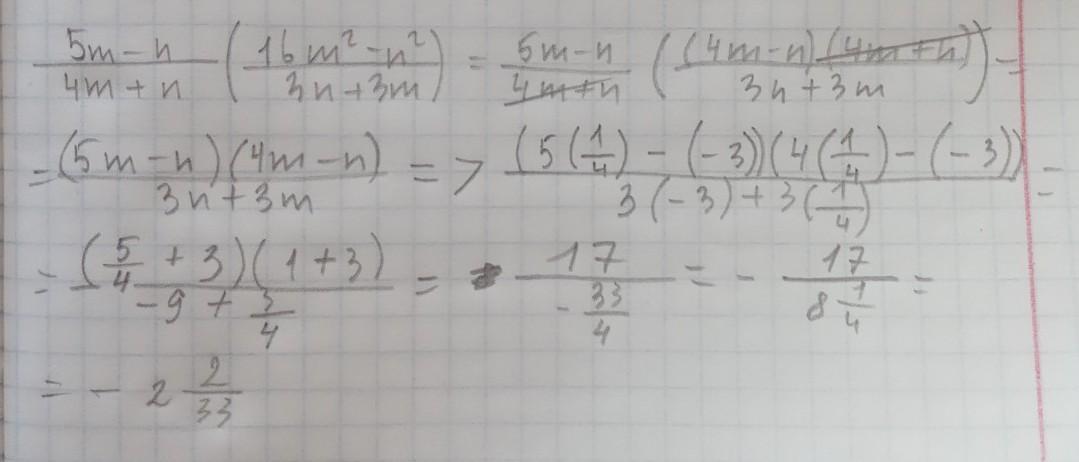 \frac{5m-n}{4m+n} \left( \frac{16m^2-n^2}{3n+3m} \right) = \frac{5m-n}{4m+n} \left( \frac{(4m-n)(4m+n)}{3n+3m} \right) =
= \frac{(5m-n)(4m-n)}{3n+3m} => \frac{(5(\frac{1}{4})-(-3))(4(\frac{1}{4})-(-3))}{3(-3)+3(\frac{1}{4})} =
= \frac{(\frac{5}{4}+3)(1+3)}{-9+\frac{3}{4}} = \frac{17}{-\frac{33}{4}} = -\frac{17}{8\frac{1}{4}} =
= -2\frac{2}{33}